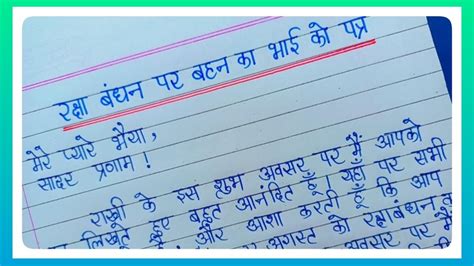 रक्षा बंधन पर बहन का भाई को पत्र
मेरे प्यारे भैया,
सादर प्रणाम !
राखी के इस शुभ अवसर पर मैं आपको
लिखते हुए बहुत आनंदित हूँ। यहाँ पर सभी
और आशा करती हूँ कि आप
अगस्त को रक्षाबंधन
अवसर पर मैं